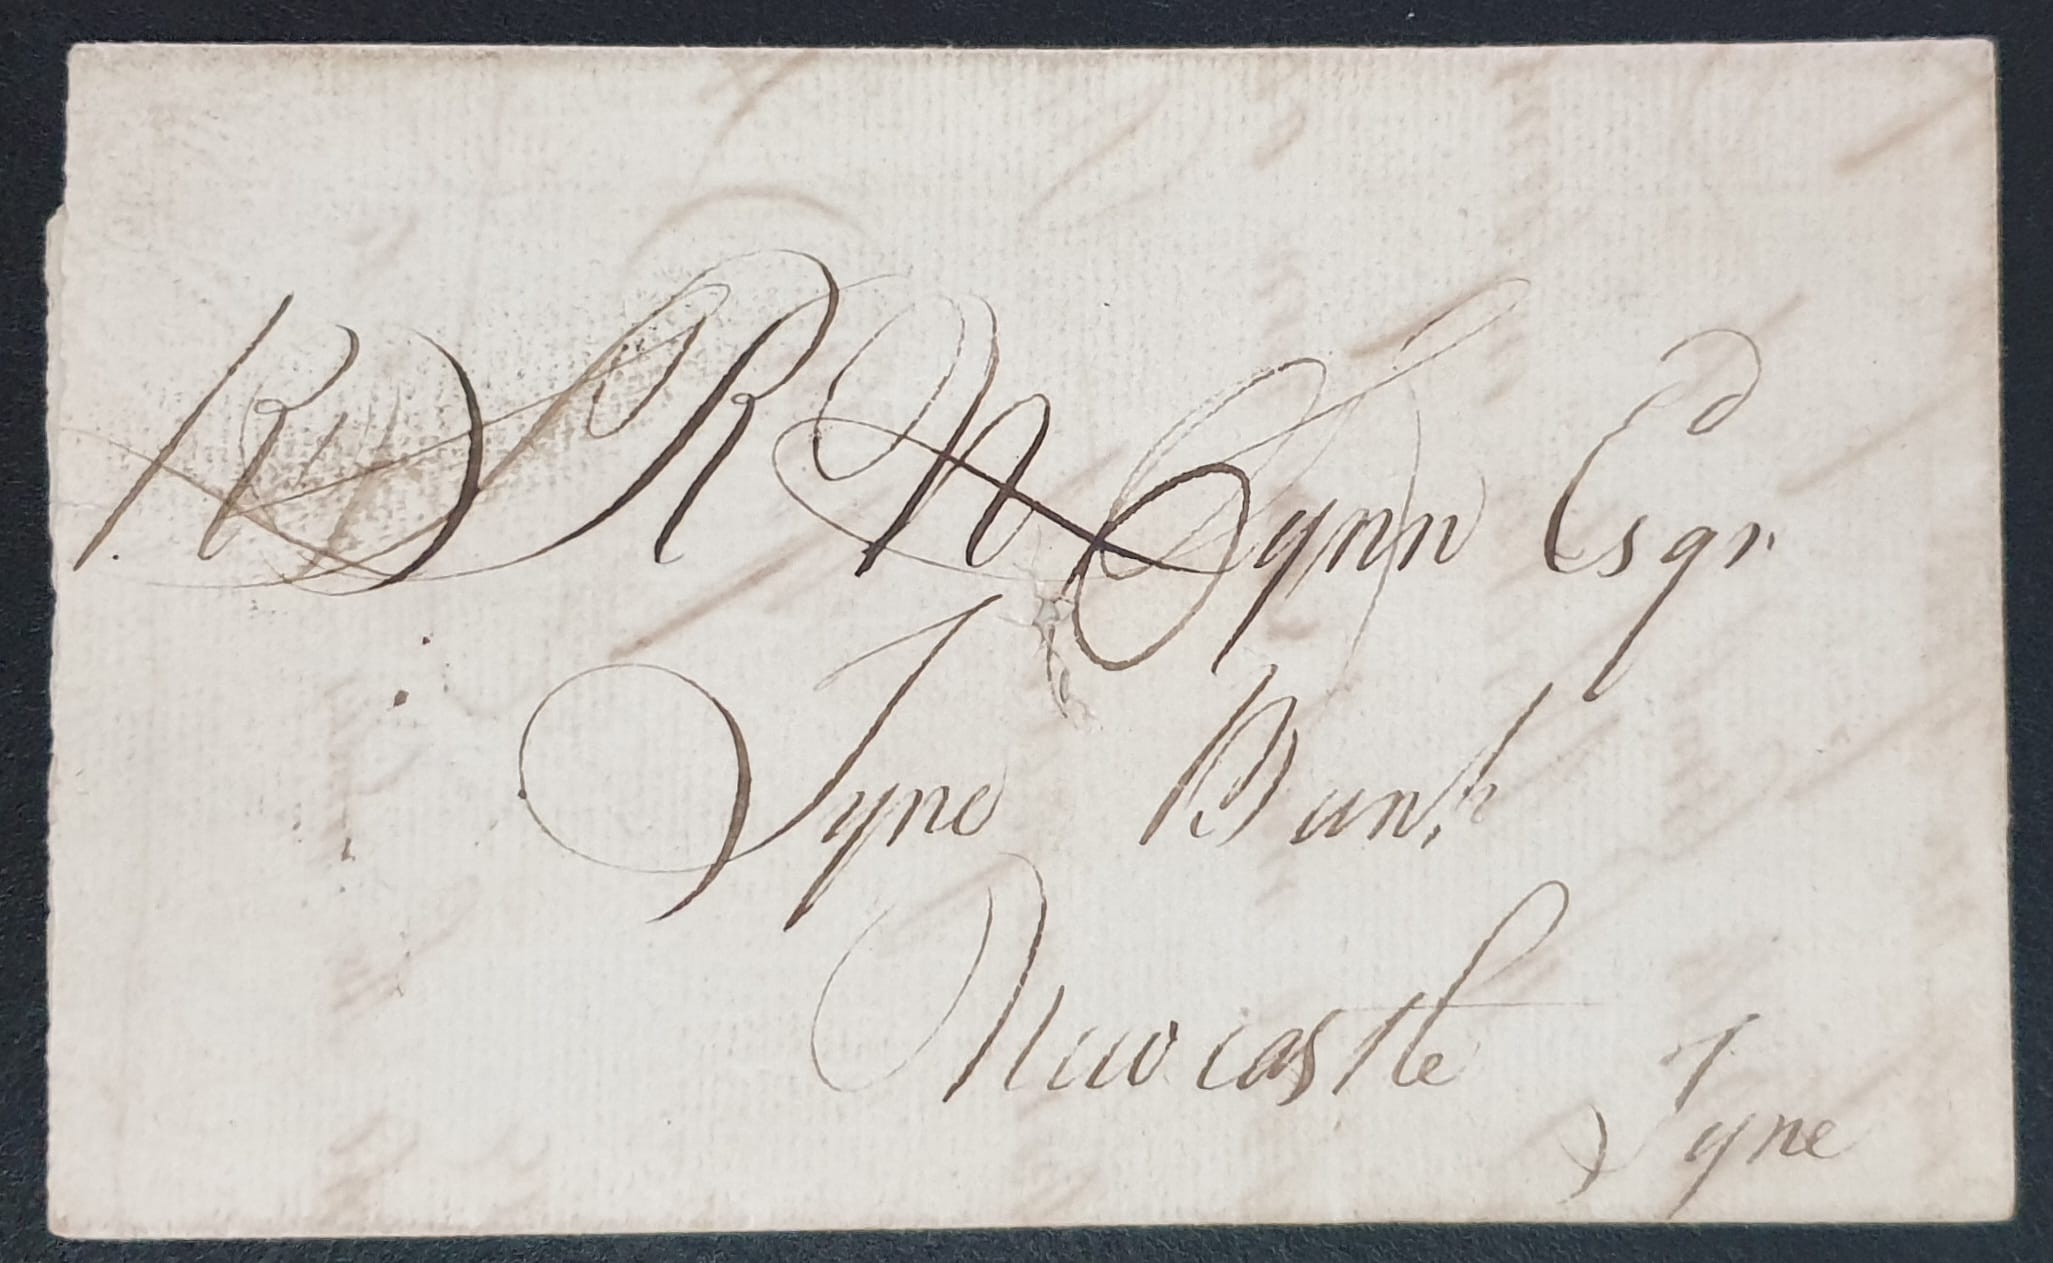 R R N Lynn Esqr
Tyne Bank
Newcastle
Tyne